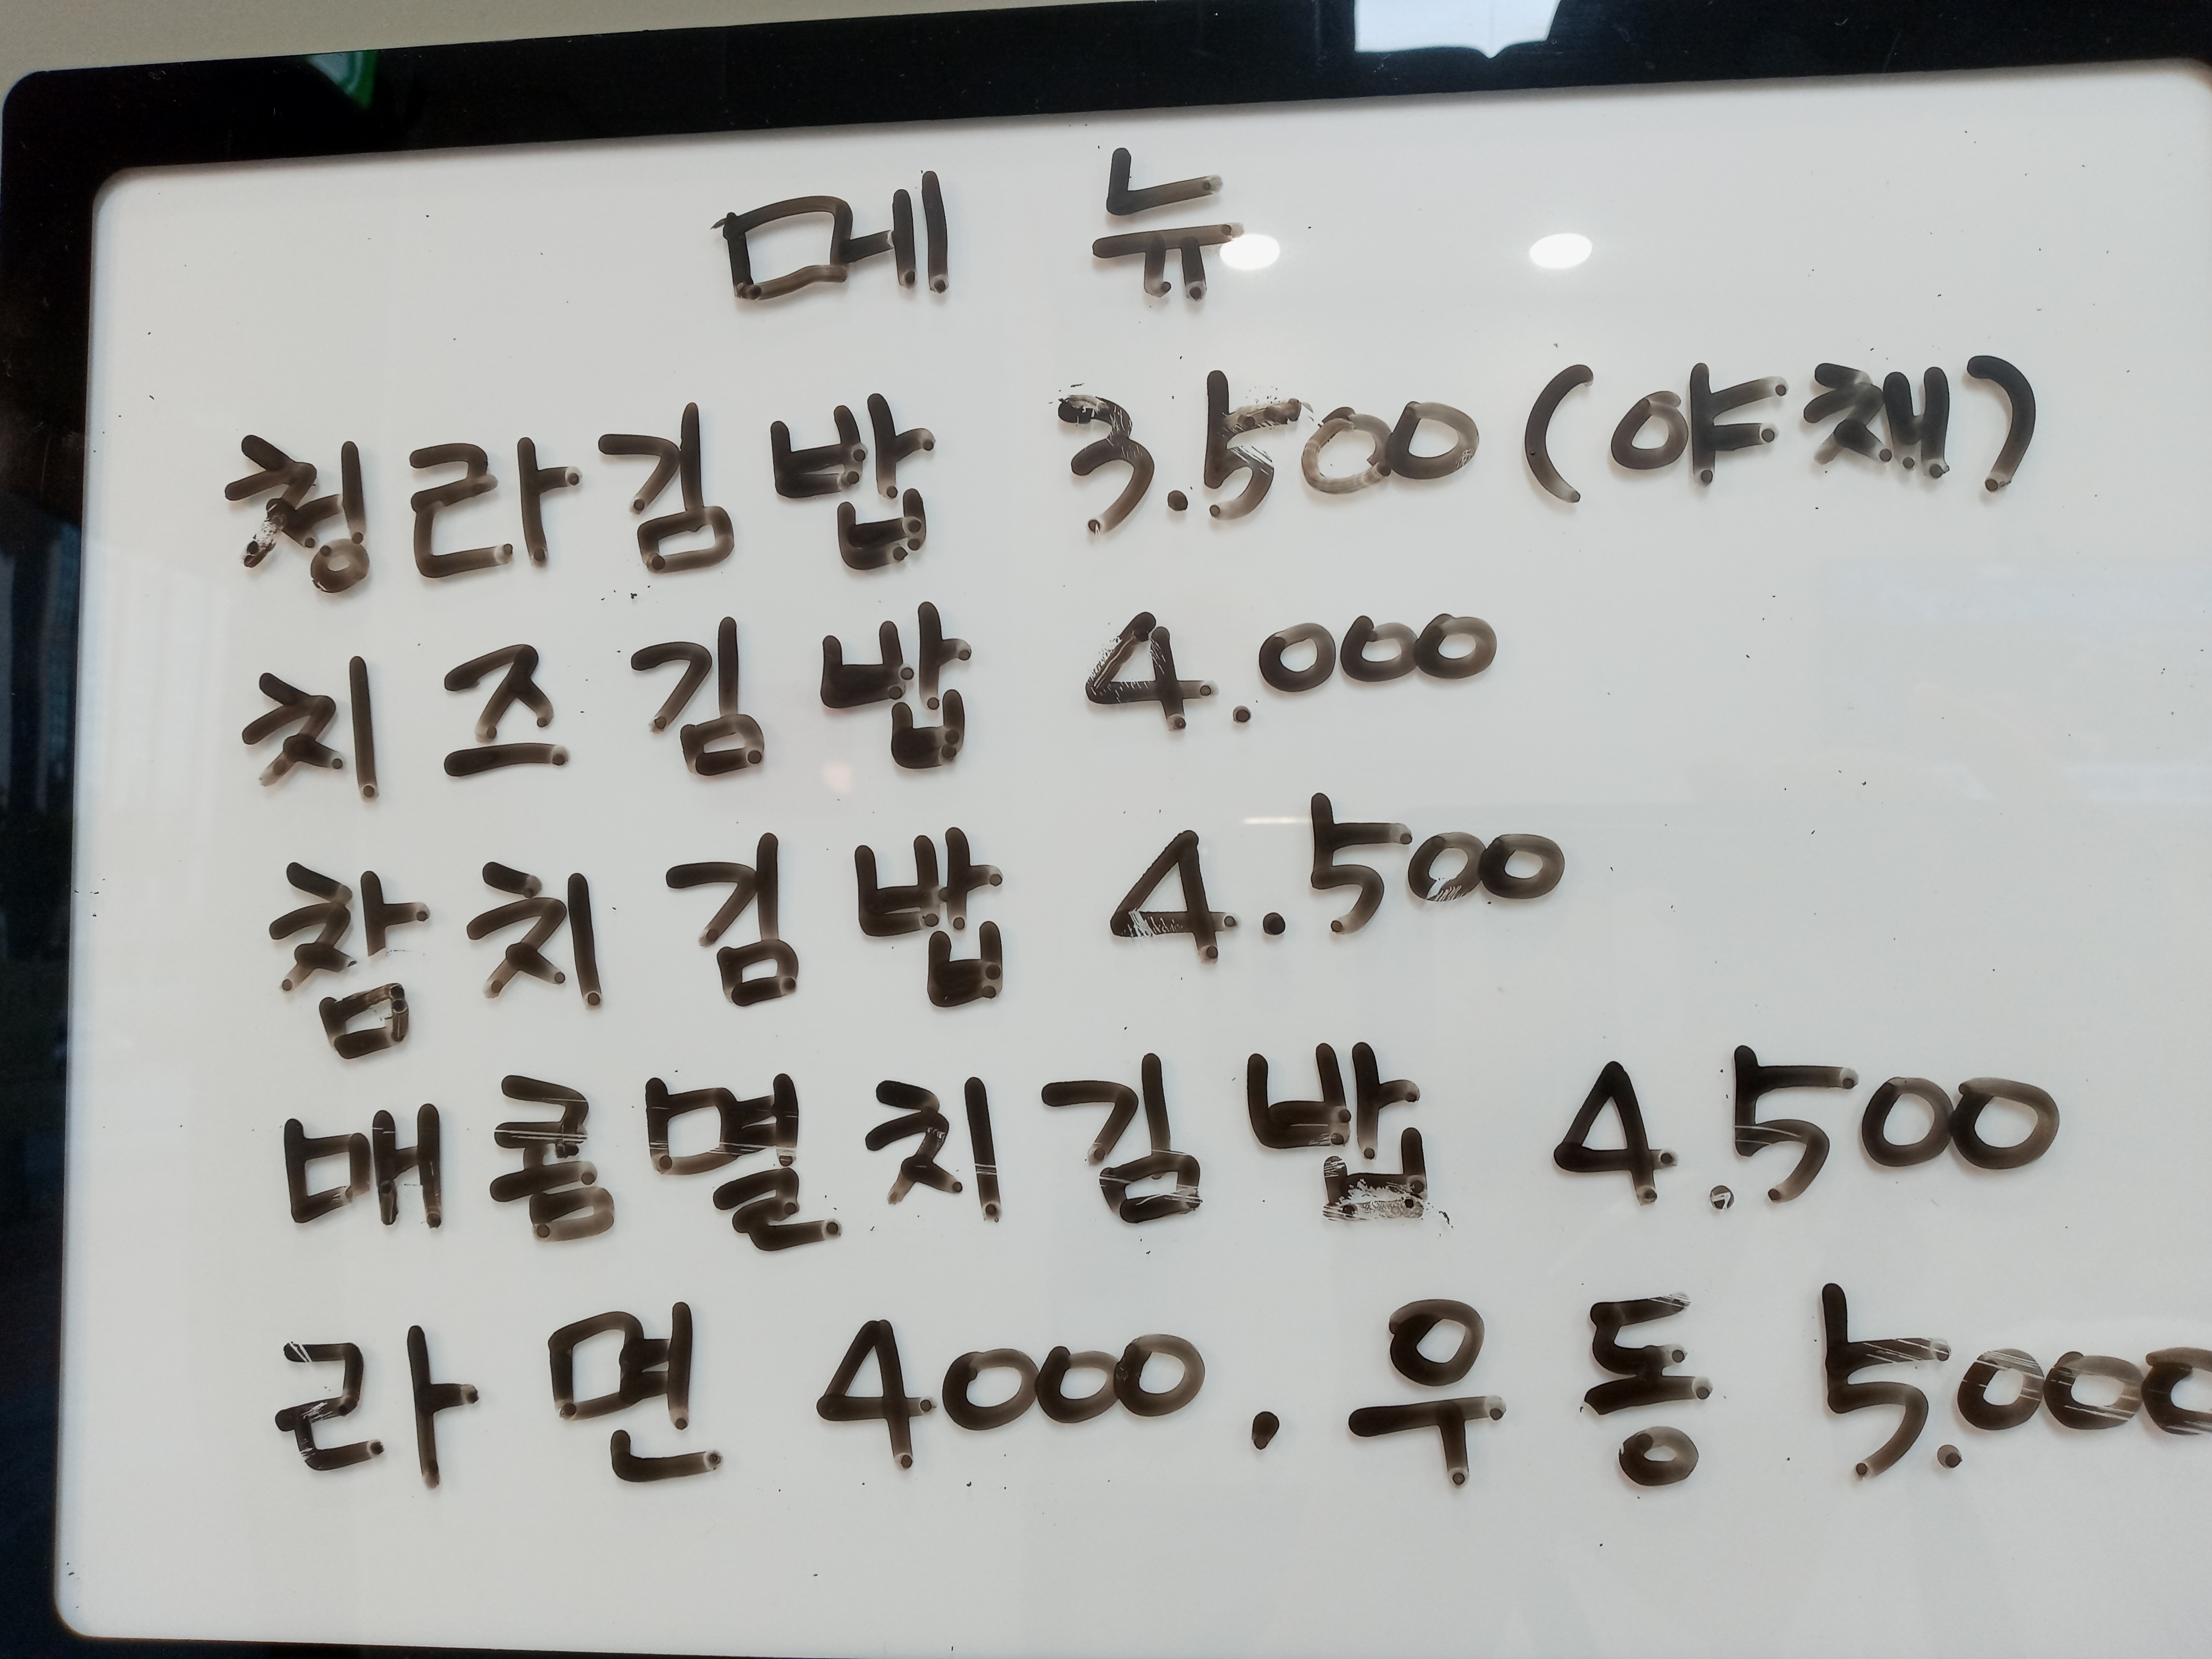 메뉴
청라김밥 3.500 (야채)
치즈김밥 4.000
참치김밥 4.500
매콤멸치김밥 4.500
라면 4000, 우동 5.000